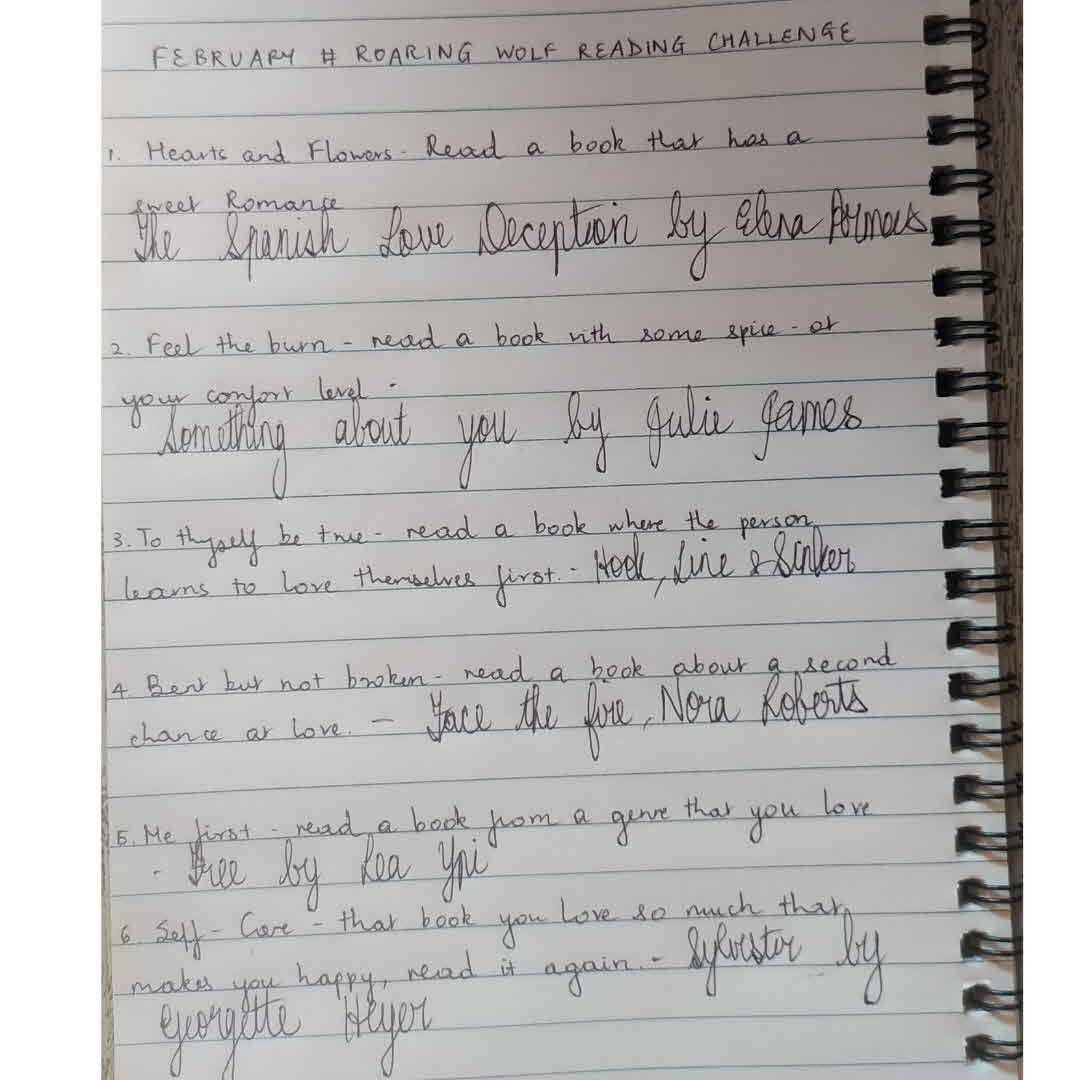 FEBRUARY # ROARING WOLF READING CHALLENGE
1. Hearts and Flowers - Read a book that has a
sweet Romance
The Spanish Love Deception by Elena Armas
2. Feel the burn - read a book with some spice - at
your comfort level -
Something about you by Julie James
3. To thyself be true - read a book where the person
learns to love themselves first. - Hook, Line & Sinker
4. Bent but not broken - read a book about a second
chance at love. - Face the fire, Nora Roberts
5. Me first - read a book from a genre that you love
- Free by Lea Ypi
6. Self - Care - that book you love so much that
makes you happy, read it again. - Sylvester by
Georgette Heyer